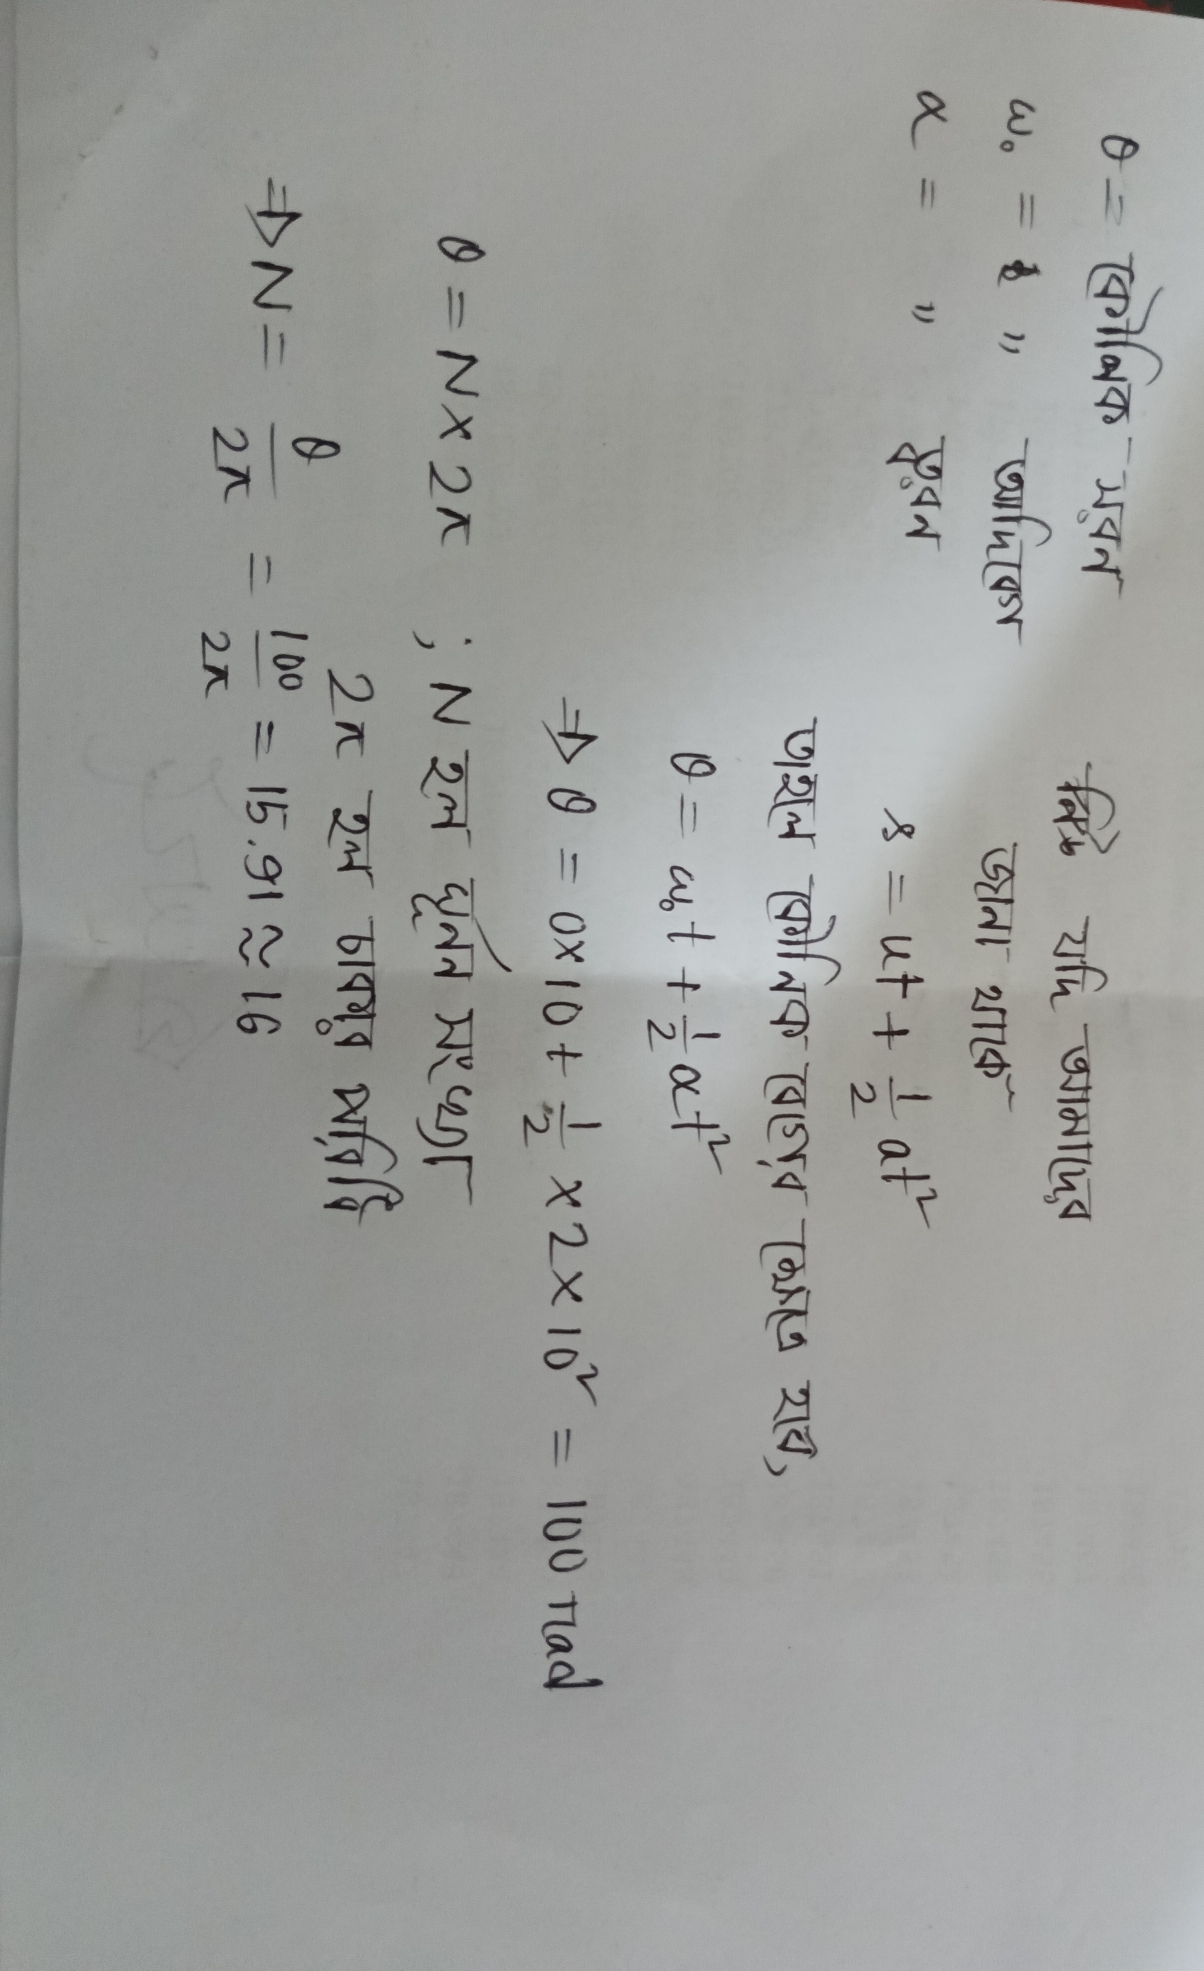 θ = কৌনিক সরন
ω₀ = " " আদিবেগ
α = " ত্বরন
কিন্তু যদি আমাদের
জানা থাকে
s = ut + 1/2 at²
তাহলে কৌনিক বেগের ক্ষেত্রে হবে,
θ = ω₀t + 1/2 αt²
⇒ θ = 0×10 + 1/2 × 2 × 10² = 100 rad
θ = N × 2π ; N হল ঘূর্নন সংখ্যা
2π হল চাকার পরিধি
⇒ N = θ/2π = 100/2π = 15.91 ≈ 16